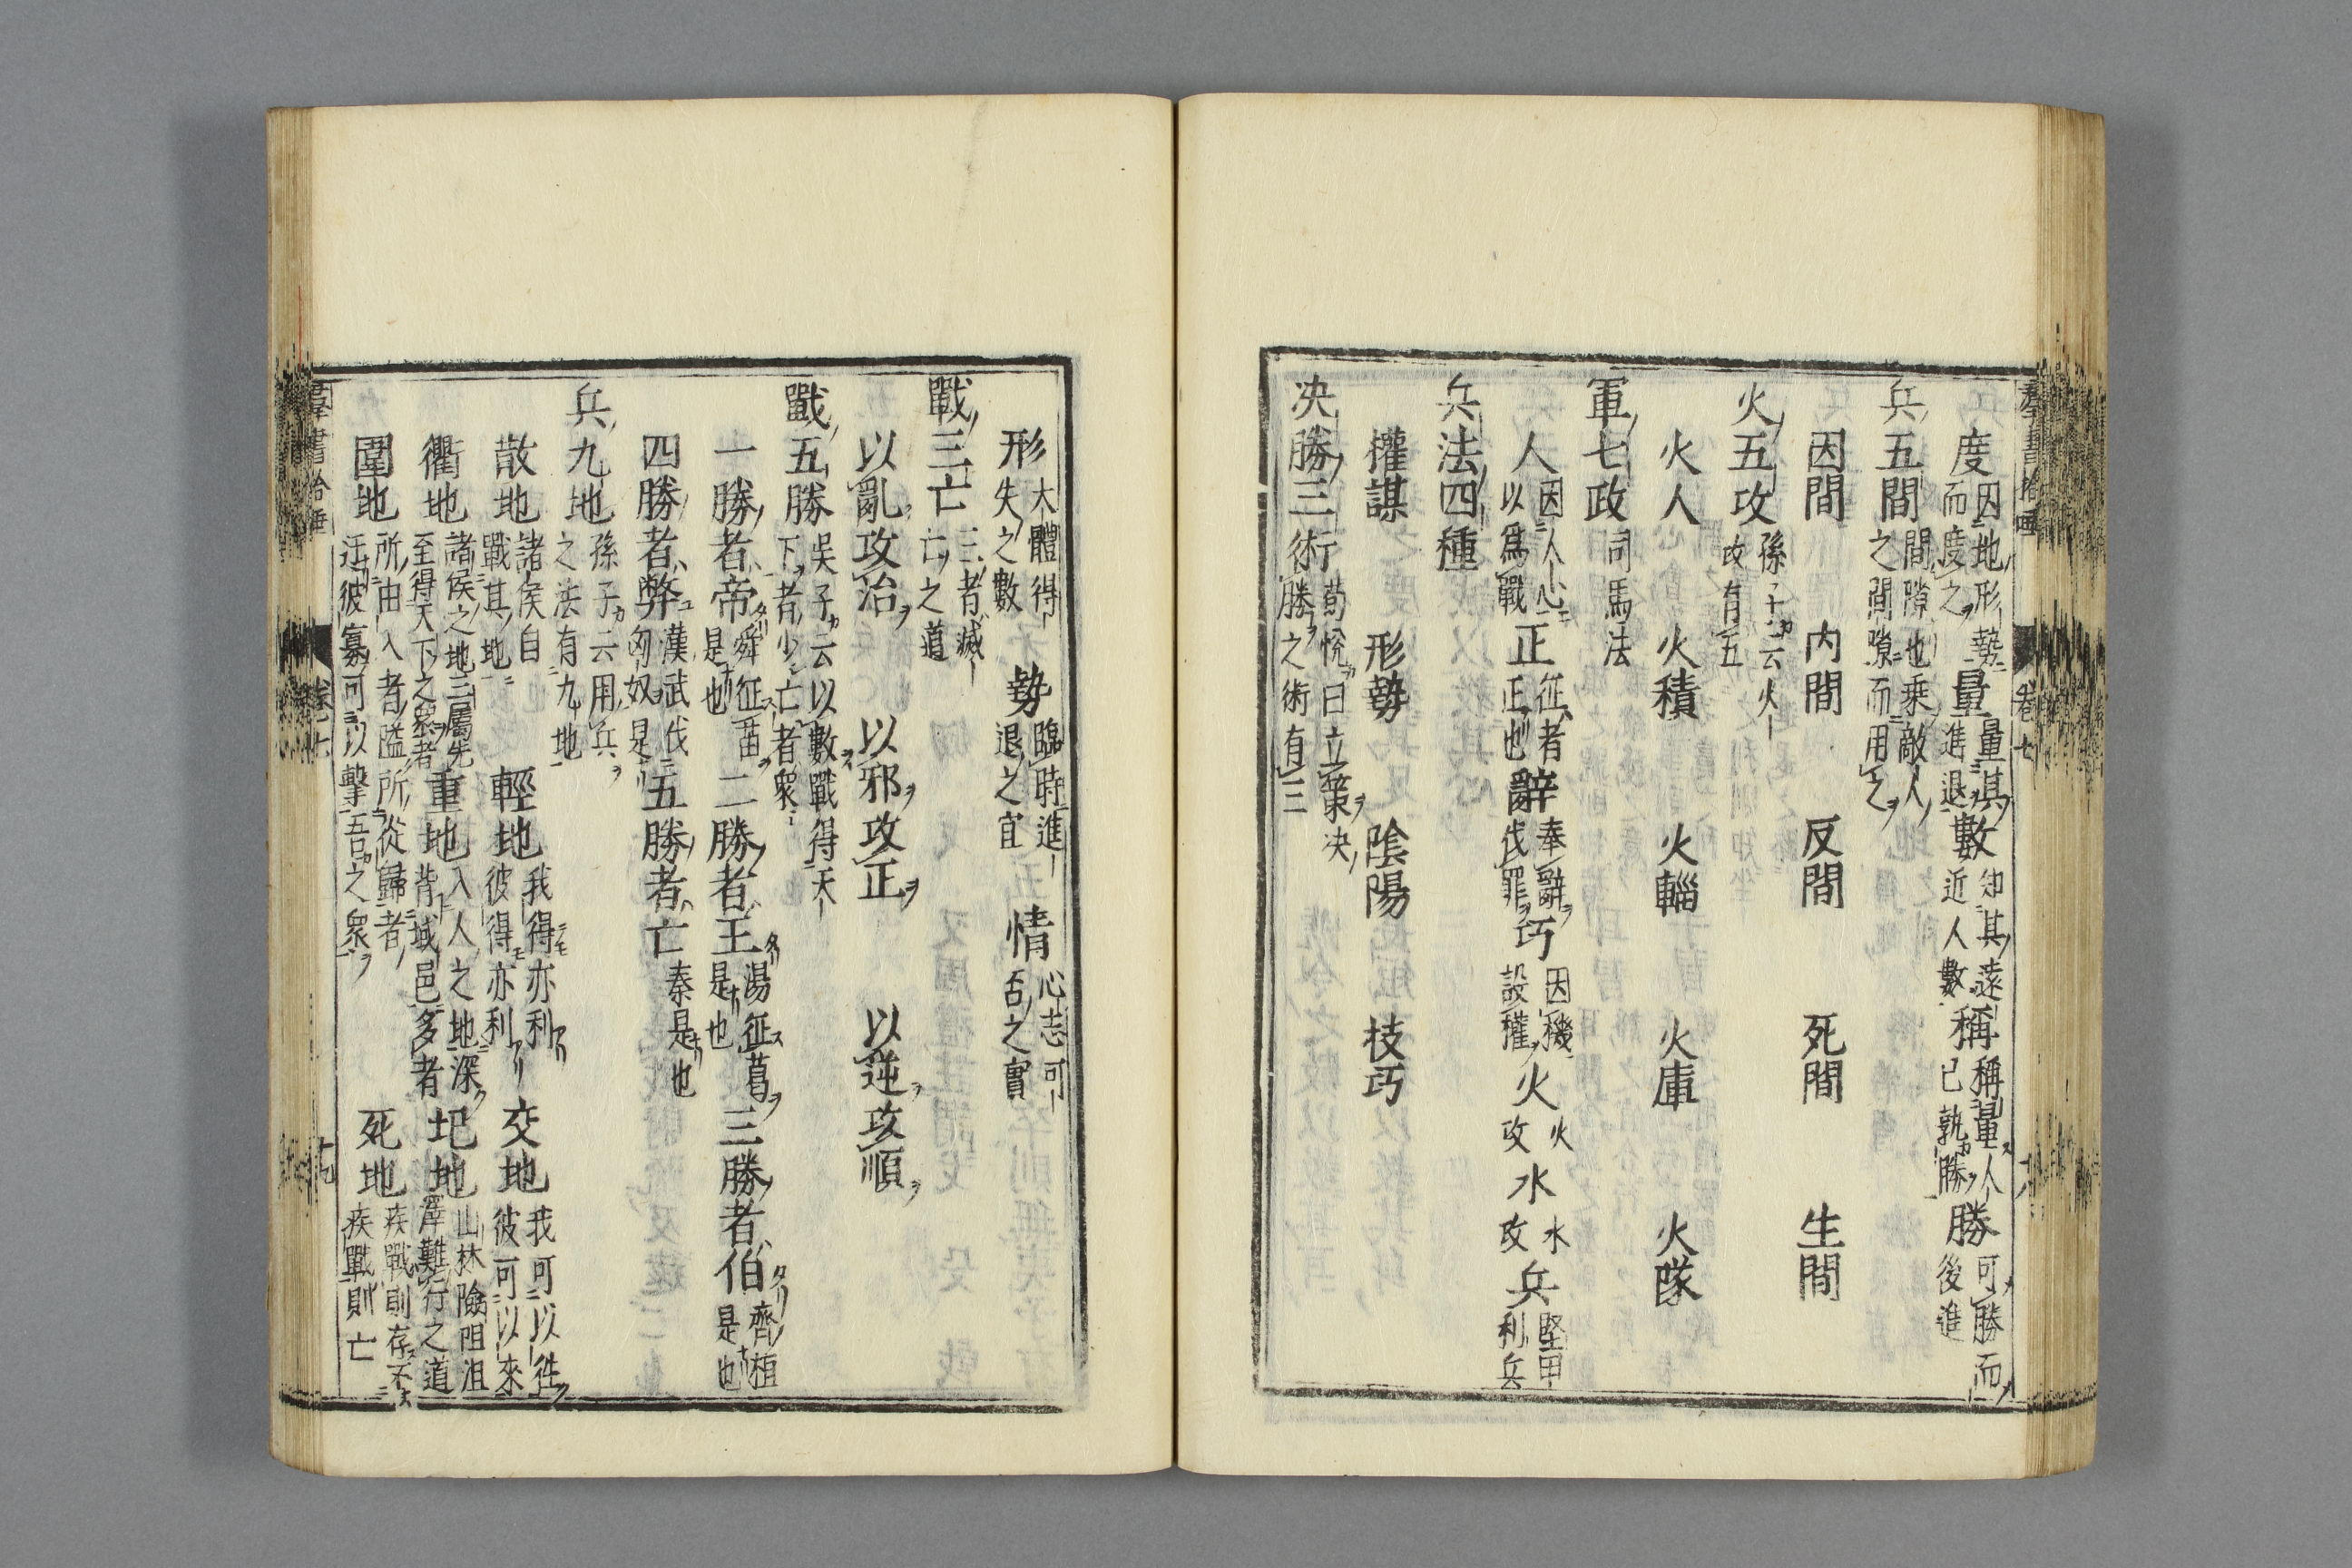 度因地形勢而度之量量其進退數知其遠近人數稱稱量人已孰勝勝可勝而後進
兵五間間隙也乘敵人之間隙而用之
因間 内間 反間 死間 生間
火五攻孫子十二云火攻有五
火人 火積 火輜 火庫 火隊
軍七政司馬法
人因人心以爲戰正征者正也辭奉辭伐罪巧因機設權火火攻水水攻兵堅甲利兵
兵法四種
權謀 形勢 陰陽 技巧
决勝三術荀悅曰立策决勝之術有三
形大體得失之數 勢臨時進退之宜 情心志可否之實
戰三亡三者滅亡之道
以亂攻治 以邪攻正 以逆攻順
戰五勝吳子云以數戰得天下者少亡者衆
一勝者帝舜征苗是也 二勝者王湯征葛是也 三勝者伯齊桓是也
四勝者弊漢武伐匈奴是 五勝者亡秦是也
兵九地孫子云用兵之法有九地
散地諸侯自戰其地 輕地我得亦利彼得亦利 交地我可以往彼可以來
衢地諸侯之地三屬先至得天下之衆者 重地入人之地深背城邑多者 圮地山林險阻沮澤難行之道
圍地所由入者隘所從歸者迂彼寡可以擊吾之衆 死地疾戰則存不疾戰則亡
羣書拾唾 卷七 十八
羣書拾唾 卷七 十九